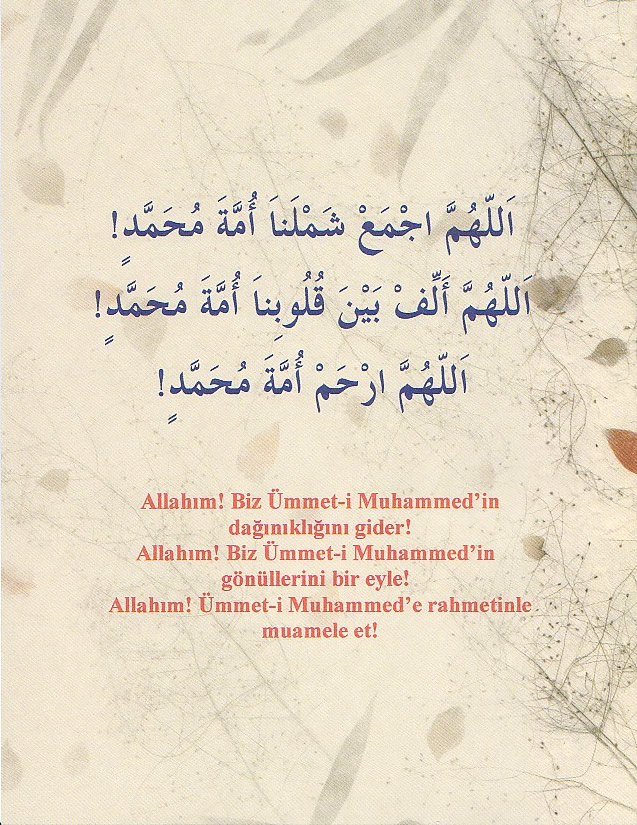 اَللّٰهُمَّ اجْمَعْ شَمْلَناَ أُمَّةَ مُحَمَّدٍ!
اَللّٰهُمَّ أَلِّفْ بَيْنَ قُلُوبِناَ أُمَّةَ مُحَمَّدٍ!
اَللّٰهُمَّ ارْحَمْ أُمَّةَ مُحَمَّدٍ!
Allahım! Biz Ümmet-i Muhammed’in
dağınıklığını gider!
Allahım! Biz Ümmet-i Muhammed’in
gönüllerini bir eyle!
Allahım! Ümmet-i Muhammed’e rahmetinle
muamele et!